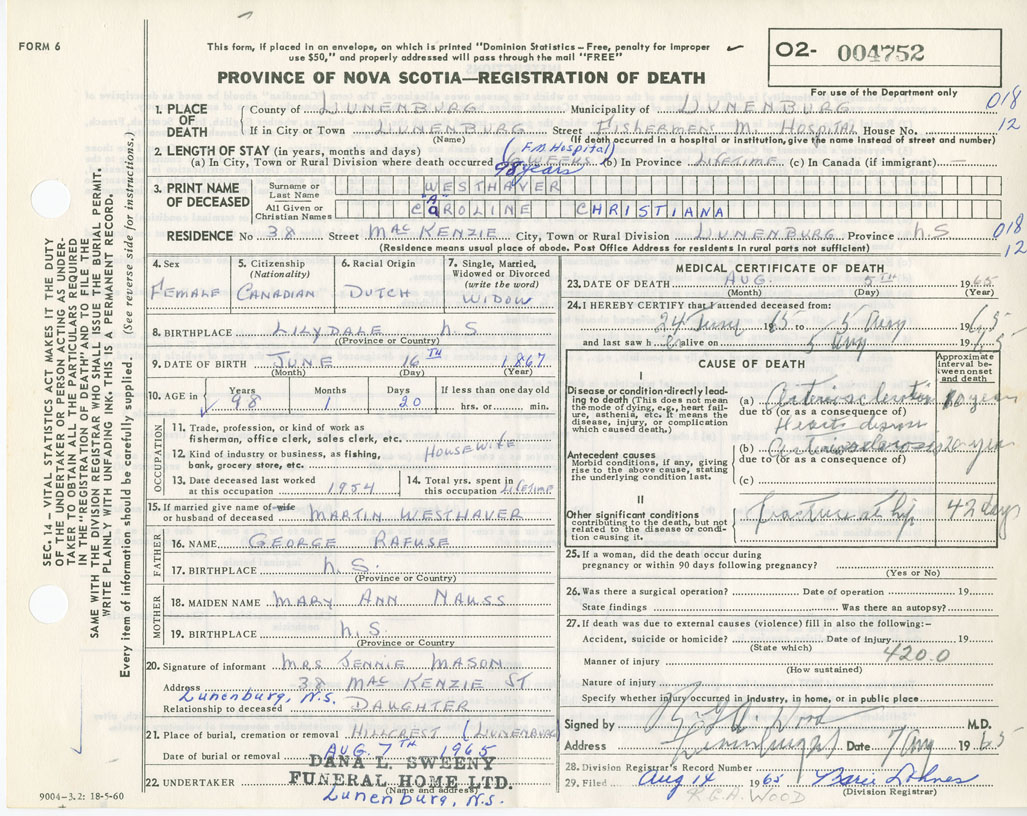 FORM 6
This form, if placed in an envelope, on which is printed "Dominion Statistics – Free, penalty for improper
use $50," and properly addressed will pass through the mail "FREE"
O2- 004752
PROVINCE OF NOVA SCOTIA—REGISTRATION OF DEATH
For use of the Department only
018
12
1. PLACE OF DEATH
County of LUNENBURG Municipality of LUNENBURG
If in City or Town LUNENBURG Street FISHERMENS M. HOSPITAL House No.
(Name) (If death occurred in a hospital or institution, give the name instead of street and number)
2. LENGTH OF STAY (in years, months and days) (F.M. Hospital)
(a) In City, Town or Rural Division where death occurred 6 WEEKS (b) In Province LIFETIME (c) In Canada (if immigrant) —
98 years
3. PRINT NAME OF DECEASED
Surname or Last Name WESTHAVER
"A"
All Given or Christian Names CAROLINE CHRISTIANA
RESIDENCE No 38 Street MACKENZIE City, Town or Rural Division LUNENBURG Province N.S
018
12
(Residence means usual place of abode. Post Office Address for residents in rural parts not sufficient)
SEC. 14 – VITAL STATISTICS ACT MAKES IT THE DUTY
OF THE UNDERTAKER OR PERSON ACTING AS UNDER-
TAKER TO OBTAIN ALL THE PARTICULARS REQUIRED
IN THE "REGISTRATION OF DEATH" AND TO FILE THE
SAME WITH THE DIVISION REGISTRAR WHO SHALL ISSUE THE BURIAL PERMIT.
WRITE PLAINLY WITH UNFADING INK. THIS IS A PERMANENT RECORD.
Every item of information should be carefully supplied. (See reverse side for instructions.)
4. Sex
FEMALE
5. Citizenship (Nationality)
CANADIAN
6. Racial Origin
DUTCH
7. Single, Married, Widowed or Divorced (write the word)
WIDOW
8. BIRTHPLACE LILYDALE N.S
(Province or Country)
9. DATE OF BIRTH JUNE 16TH 1867
(Month) (Day) (Year)
10. AGE in
Years 98
Months 1
Days 20
If less than one day old
hrs. or min.
OCCUPATION
11. Trade, profession, or kind of work as
fisherman, office clerk, sales clerk, etc.
HOUSEWIFE
12. Kind of industry or business, as fishing,
bank, grocery store, etc.
13. Date deceased last worked
at this occupation 1954
14. Total yrs. spent in
this occupation LIFETIME
15. If married give name of wife
or husband of deceased MARTIN WESTHAVER
FATHER
16. NAME GEORGE RAFUSE
17. BIRTHPLACE N.S.
(Province or Country)
MOTHER
18. MAIDEN NAME MARY ANN NAUSS
19. BIRTHPLACE N.S.
(Province or Country)
20. Signature of informant MRS JENNIE MASON
Address 38 MACKENZIE ST
Lunenburg, N.S.
Relationship to deceased DAUGHTER
21. Place of burial, cremation or removal HILLCREST (LUNENBURG)
Date of burial or removal AUG. 7TH 1965
DANA L. SWEENY
FUNERAL HOME LTD.
22. UNDERTAKER
(Name and address)
Lunenburg, N.S.
9004-3.2: 18-5-60
MEDICAL CERTIFICATE OF DEATH
23. DATE OF DEATH AUG. 5TH 1965
(Month) (Day) (Year)
24. I HEREBY CERTIFY that I attended deceased from:
24 June 1965 to 5 Aug 1965
and last saw h alive on 5 Aug 1965
CAUSE OF DEATH
Approximate interval between onset and death
I
Disease or condition directly lead-
ing to death (This does not mean
the mode of dying, e.g., heart fail-
ure, asthenia, etc. It means the
disease, injury, or complication
which caused death.)
(a) Arteriosclerotic 10 years
due to (or as a consequence of)
Heart disease
Antecedent causes
Morbid conditions, if any, giving
rise to the above cause, stating
the underlying condition last.
(b) Arteriosclerosis 20 yrs
due to (or as a consequence of)
(c)
II
Other significant conditions
contributing to the death, but not
related to the disease or condi-
tion causing it.
fracture hip 42 days
25. If a woman, did the death occur during
pregnancy or within 90 days following pregnancy?
(Yes or No)
26. Was there a surgical operation? Date of operation 19
State findings Was there an autopsy?
27. If death was due to external causes (violence) fill in also the following:–
Accident, suicide or homicide? Date of injury 19
(State which)
420.0
Manner of injury
(How sustained)
Nature of injury
Specify whether injury occurred in industry, in home, or in public place
Signed by Wood M.D.
Address Date 7 Aug 1965
28. Division Registrar's Record Number
29. Filed Aug 14 1965
(Division Registrar)
R.G.A. WOOD